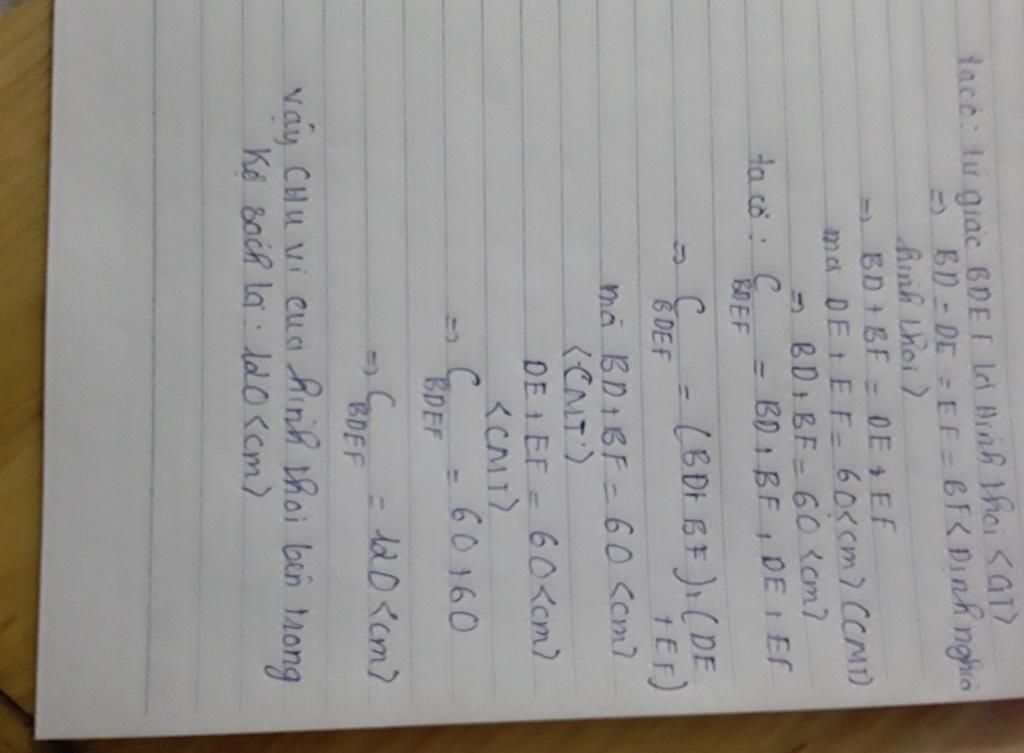 ta có: tứ giác BDEF là hình thoi <GT>
=> BD = DE = EF = BF <Định nghĩa
hình thoi>
=> BD + BF = DE + EF
mà DE + EF = 60 <cm> (CMT)
=> BD + BF = 60 <cm>
ta có: C BDEF = BD + BF + DE + EF
=> C BDEF = (BD + BF) + (DE
+ EF)
mà BD + BF = 60 <cm>
<CMT>
DE + EF = 60 <cm>
<CMT>
=> C BDEF = 60 + 60
=> C BDEF = 120 <cm>
vậy CHU vi của hình thoi bên trong
kệ sách là: 120 <cm>